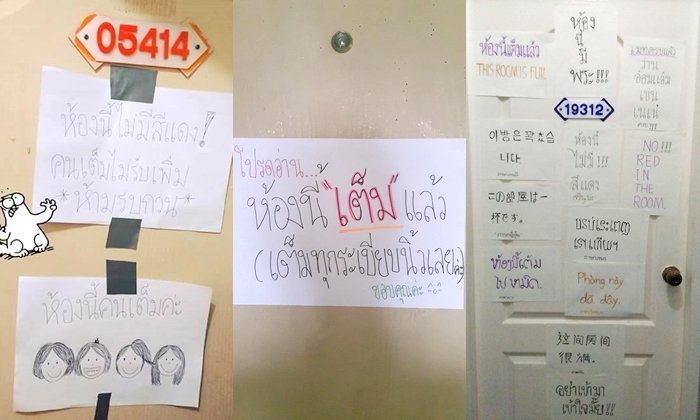 05414
ห้องนี้ไม่มีสีแดง!
คนเต็มไม่รับเพิ่ม
*ห้ามรบกวน*
ห้องนี้คนเต็มคะ
โปรดอ่าน...
ห้องนี้ "เต็ม" แล้ว
(เต็มทุกระเบียบนิ้วเลยค่ะ)
ขอบคุณคะ
ห้องนี้เต็มแล้ว
THIS ROOM IS FULL
ห้อง
นี้
มี
พระ!!!
เมทครบแล้ว
19312
이 방은 꽉 찼습
니다.
ห้องนี้
ไม่มี!!!
สีแดง
NO!!!
RED
IN
THE
ROOM
この部屋は一
杯です。
Phòng này
đã đầy.
这间房间
很满.
อย่าเข้ามา
เข้าใจมั้ย!!